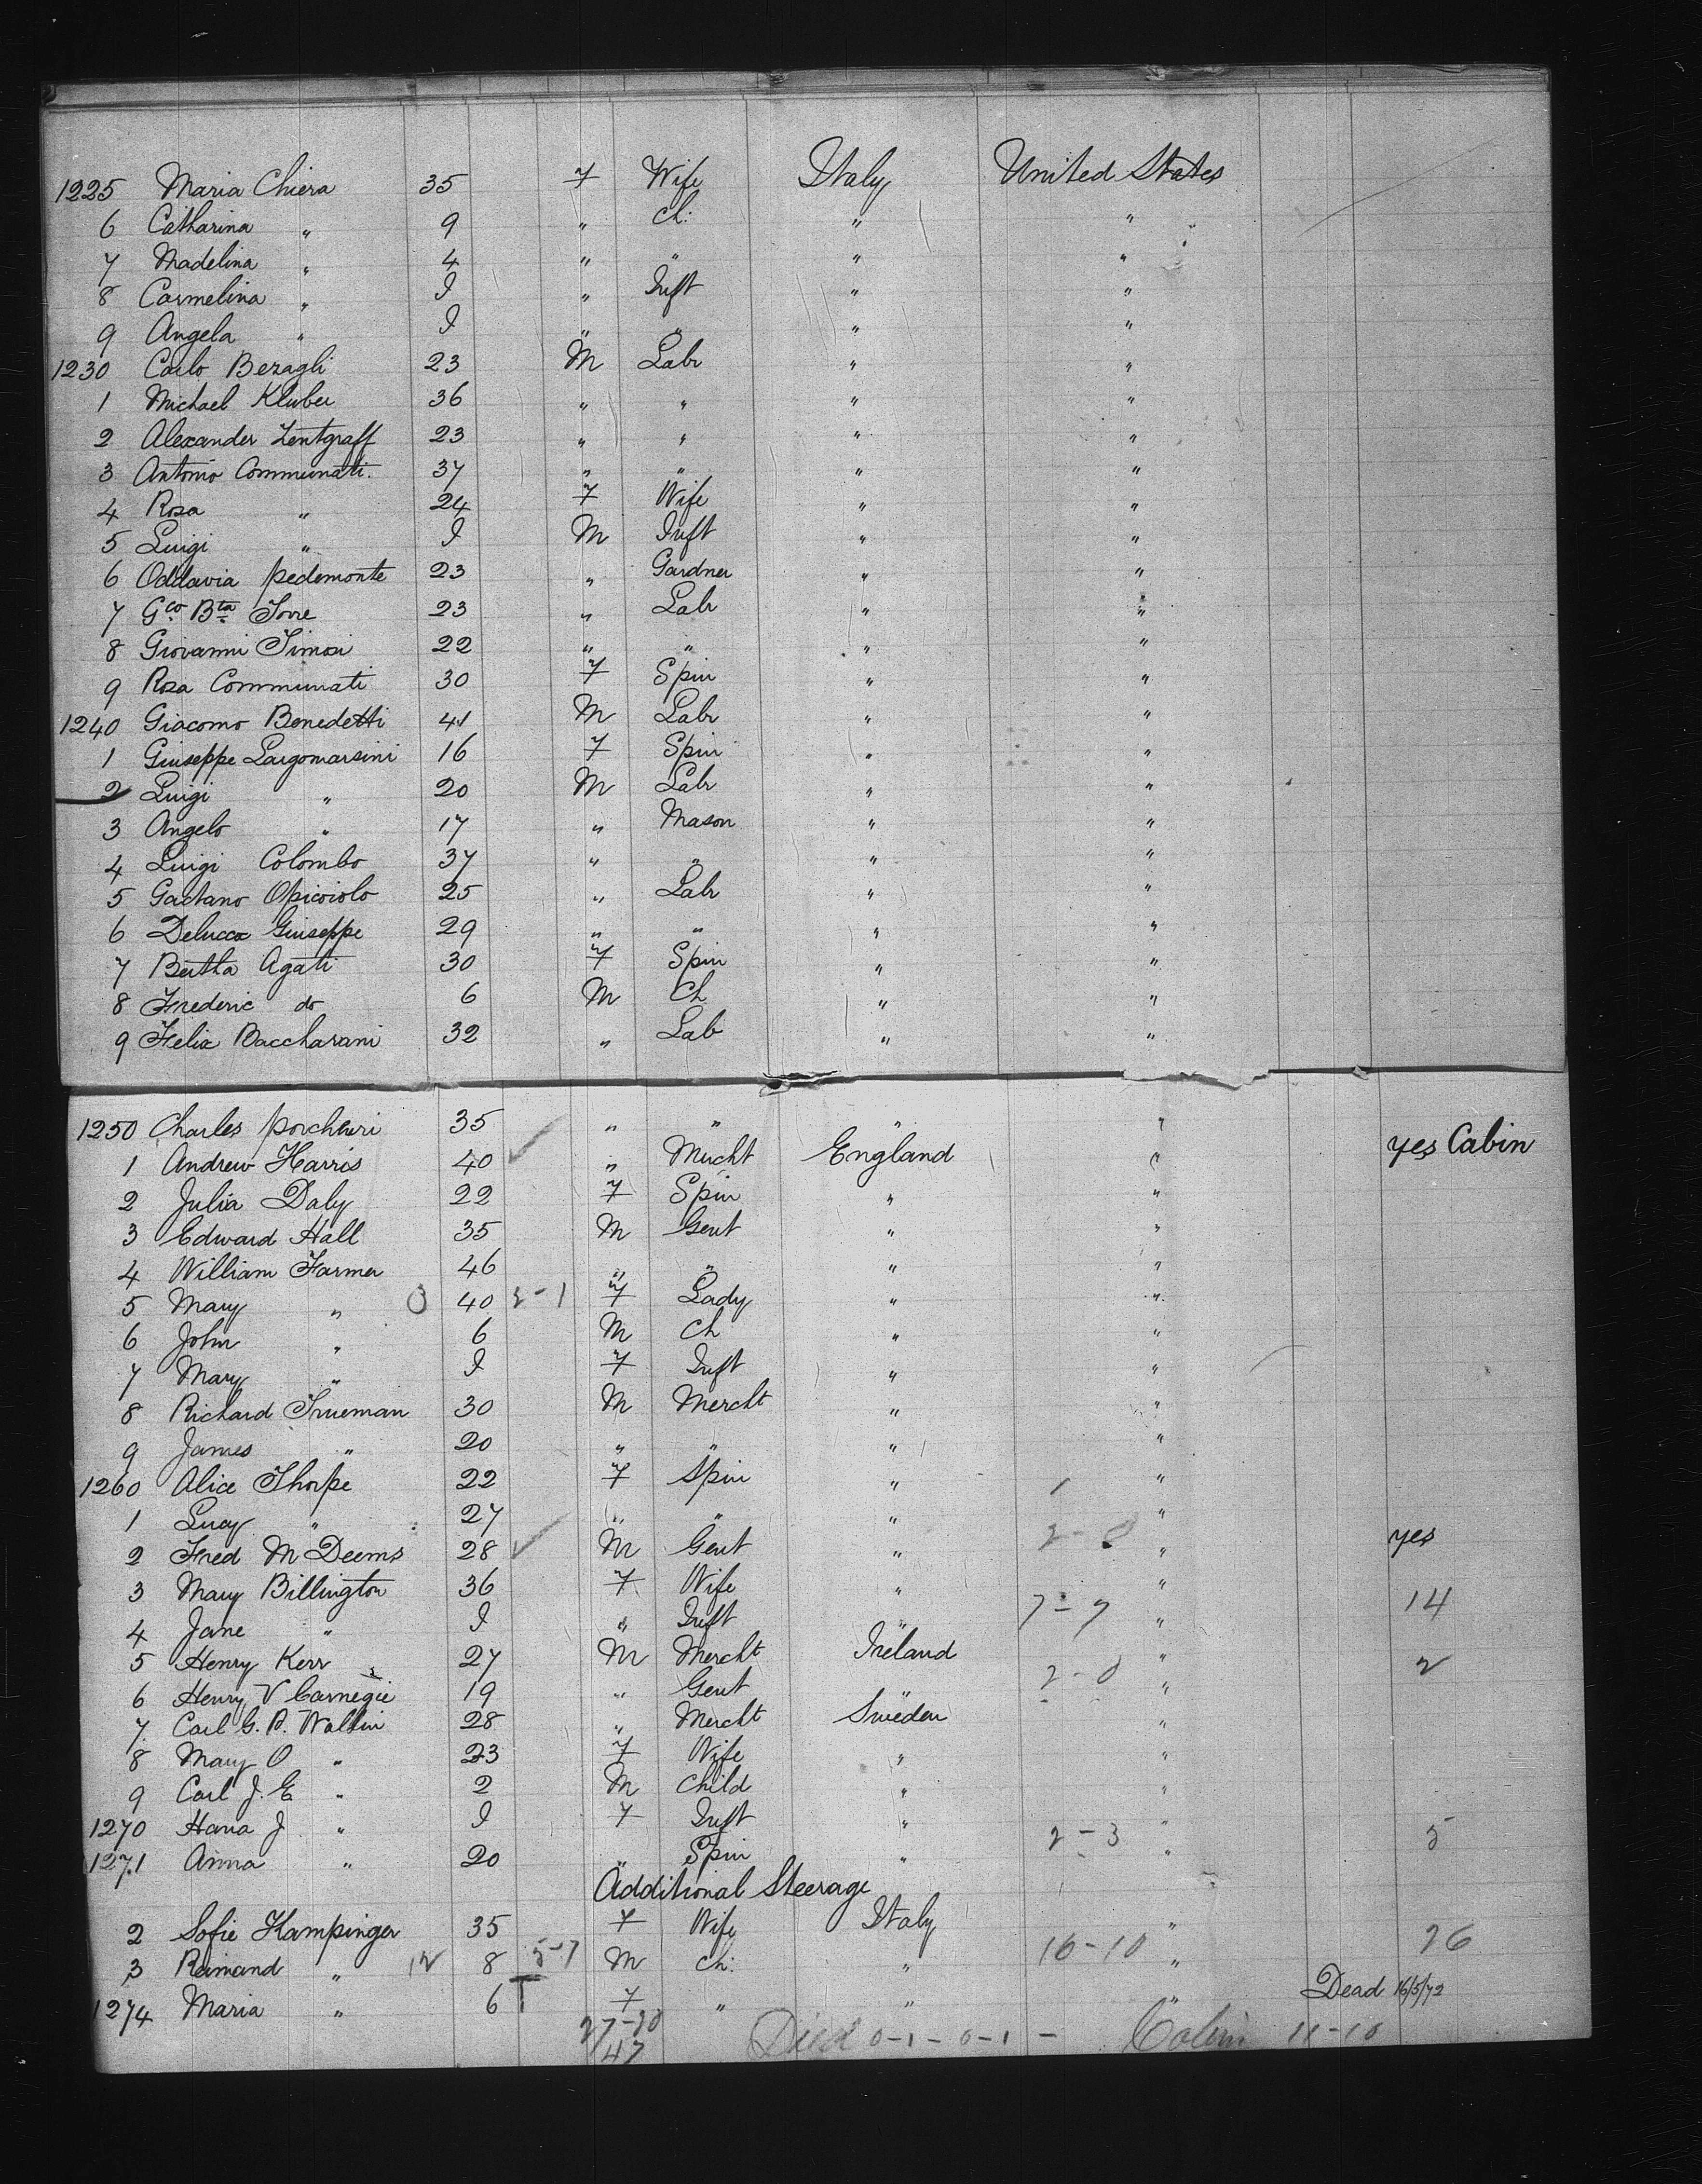 1225 Maria Chiera 35 F Wife Italy United States
6 Catharina " 9 " Ch: " "
7 Madelina " 4 " " " "
8 Carmelina " I " Inft " "
9 Angela " I " " " "
1230 Carlo Bezagli 23 M Labr " "
1 Michael Kluber 36 " " " "
2 Alexander Zentgraff 23 " " " "
3 Antonio Communati. 37 " " " "
4 Rosa " 24 F Wife " "
5 Luigi " I M Inft " "
6 Oddavia pedemonte 23 " Gardner " "
7 Gco. Bta Torre 23 " Labr " "
8 Giovanni Simosi 22 " " " "
9 Rosa Communati 30 F Spin " "
1240 Giacomo Benedetti 41 M Labr " "
1 Giuseppe Largomarsini 16 F Spin " "
2 Luigi " 20 M Labr " "
3 Angelo " 17 " Mason " "
4 Luigi Colombo 37 " " " "
5 Gaetano Opicoiolo 25 " Labr " "
6 Delucca Giuseppe 29 " " " "
7 Bertha Agati 30 F Spin " "
8 Frederic do 6 M Ch " "
9 Felix Baccharani 32 " Lab " "
1250 Charles porcheri 35 " " " "
1 Andrew Harris 40 " Mercht England " yes Cabin
2 Julia Daly 22 F Spin " "
3 Edward Hall 35 M Gent " "
4 William Farmer 46 " " " "
5 Mary " 3 40 2-1 F Lady " "
6 John " 6 M Ch " "
7 Mary " I F Inft " "
8 Richard Trueman 30 M Mercht " "
9 James " 20 " " " "
1260 Alice Thorpe 22 F Spin " "
1 Lucy " 27 " " " "
2 Fred M Deems 28 M Gent " 2-0 " yes
3 Mary Billington 36 F Wife " "
4 Jane " I " Inft " 7-7 " 14
5 Henry Kerr 27 M Mercht Ireland "
6 Henry V Carnegie 19 " Gent " 2-0 " 2
7 Carl G. A. Wallin 28 " Mercht Sweden "
8 Mary O " 23 F Wife " "
9 Carl J. E " 2 M Child " "
1270 Hana J " I F Inft " "
1271 Anna " 20 " Spin " 2-3 " 5
Additional Steerage
2 Sofie Kampinger 35 F Wife Italy "
3 Reimand " 12 8 5-7 M Ch: " 16-10 " 26
1274 Maria " 6 T F " " " Dead 16/5/72
27-20 Died 0-1-0-1- Cabin 11-10
47